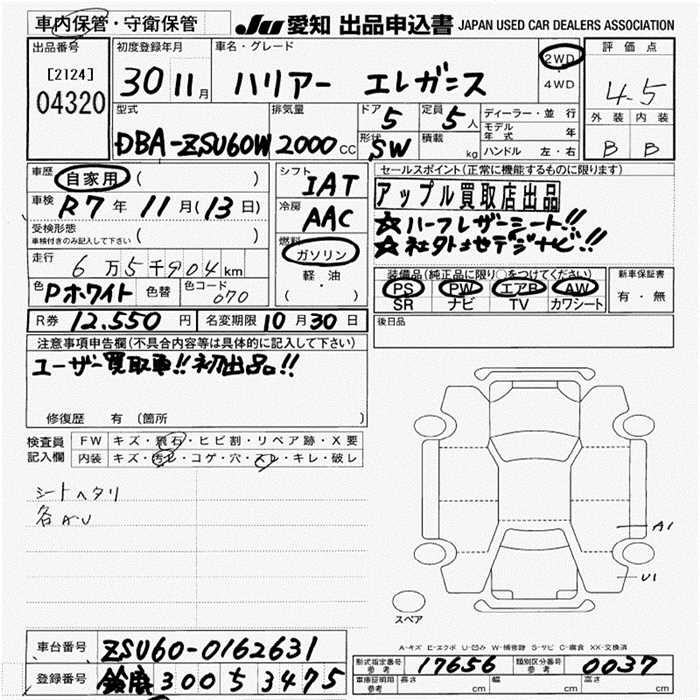 車内保管・守衛保管
JU 愛知 出品申込書 JAPAN USED CAR DEALERS ASSOCIATION
出品番号
[2124]
04320
初度登録年月
30 11月
車名・グレード
ハリアー エレガンス
2WD
4WD
評価点
4.5
外装 内装
B B
型式
DBA-ZSU60W
排気量
2000cc
ドア
5
形状
SW
定員
5人
積載
kg
ディーラー・並行
モデル年式 年
ハンドル 左・右
車歴
自家用 ( )
車検
R7年11月(13日)
受検形態
車検付きのみ記入して下さい ( )
走行
6万5千904km
色 Pホワイト 色替
色コード
070
シフト
IAT
冷房
AAC
燃料
ガソリン
軽・油
( )
セールスポイント(正常に機能するものに限ります)
アップル買取店出品
☆ハーフレザーシート!!
☆社外ナビ!!
装備品(純正品に限り○をつけてください)
PS PW エアB AW
SR ナビ TV カワシート
新車保証書
有・無
R券 12.550円 名変期限 10月30日
後日品
注意事項申告欄(不具合内容等は具体的に記入して下さい)
ユーザー買取車!!初出品!!
修復歴 有 (箇所 )
検査員記入欄
FW キズ・飛石・ヒビ割・リペア跡・X要
内装 キズ・汚レ・コゲ・穴・スレ・キレ・破レ
シートヘタリ
各AU
A1
U1
スペア
A-キズ E-エクボ U-凹み W-補修跡 S-サビ C-腐食 XX-交換済
車台番号 ZSU60-0162631
登録番号 鈴鹿 300 5 3475
形式指定番号 参考 17656
類別区分番号 参考 0037
車庫証明用 参考 長さ cm 幅 cm 高さ cm